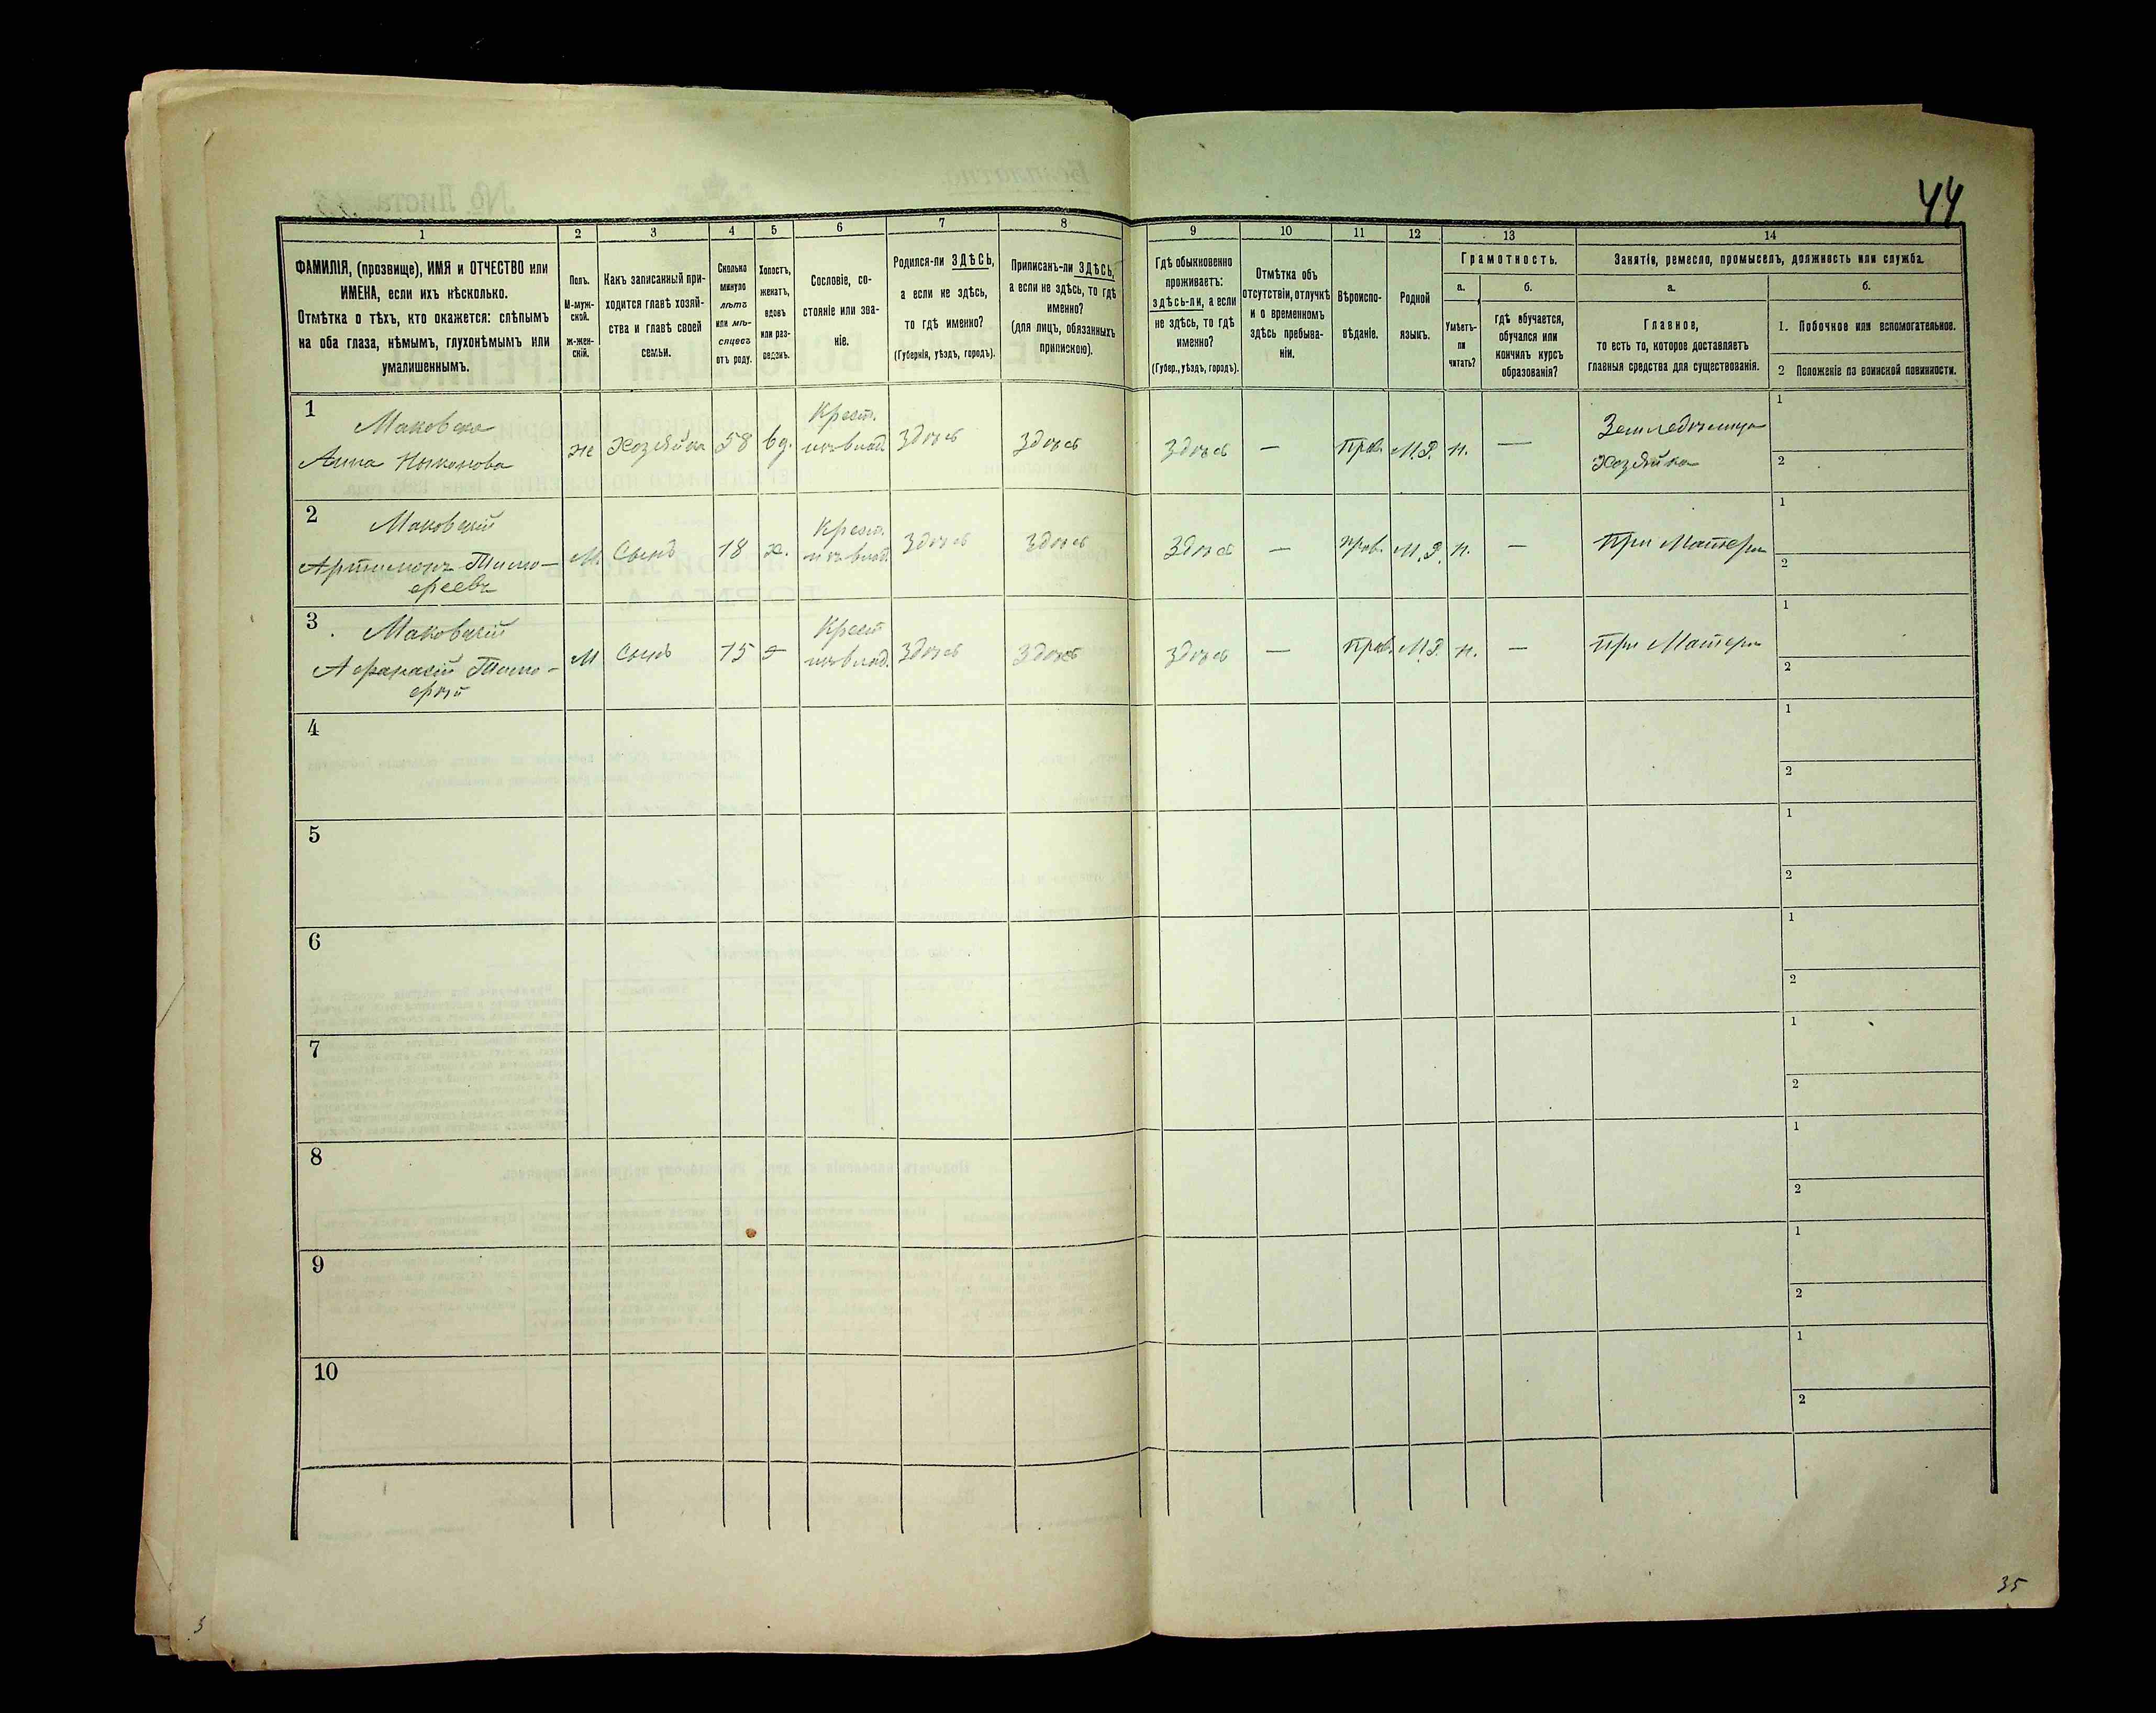 44
1
2
3
4
5
6
7
8
9
10
11
12
13
14
ФАМИЛІЯ, (прозвище), ИМЯ и ОТЧЕСТВО или
ИМЕНА, если ихъ нѣсколько.
Отмѣтка о тѣхъ, кто окажется: слѣпымъ
на оба глаза, нѣмымъ, глухонѣмымъ или
умалишеннымъ.
Полъ.
М-муж-
ской.
ж-жен-
скій.
Какъ записанный при-
ходится главѣ хозяй-
ства и главѣ своей
семьи.
Сколько
минуло
лѣтъ
или мѣ-
сяцевъ
отъ роду.
Холостъ,
женатъ,
вдовъ
или раз-
веденъ.
Сословіе, со-
стояніе или зва-
ніе.
Родился-ли ЗДѢСЬ,
а если не здѣсь,
то гдѣ именно?
(Губернія, уѣздъ, городъ).
Приписанъ-ли ЗДѢСЬ,
а если не здѣсь, то гдѣ
именно?
(для лицъ, обязанныхъ
припискою).
Гдѣ обыкновенно
проживаетъ:
здѣсь-ли, а если
не здѣсь, то гдѣ
именно?
(Губер., уѣздъ, городъ).
Отмѣтка объ
отсутствіи, отлучкѣ
и о временномъ
здѣсь пребыва-
ніи.
Вѣроиспо-
вѣданіе.
Родной
языкъ.
Грамотность.
а.
Умѣетъ-
ли
читать?
б.
гдѣ обучается,
обучался или
кончилъ курсъ
образованія?
Занятіе, ремесло, промыселъ, должность или служба.
а.
Главное,
то есть то, которое доставляетъ
главныя средства для существованія.
б.
1. Побочное или вспомогательное.
2 Положеніе по воинской повинности.
1
Маковска
Анна Никонова
же Хозяйка 58 вд. Крест. изъ влад. Здѣсь Здѣсь Здѣсь — Прав. М.Р. н. — Хозяйка
1
2
2
Маковскій
Артимонъ Тимо-
феевъ
М. Сынъ 18 х. Крест. изъ влад. Здѣсь Здѣсь Здѣсь — прав. М.Р. н. — При Матери
1
2
3
Маковскій
Афанасій Тимо-
фей
М Сынъ 15 Крест изъ влад. Здѣсь Здѣсь Здѣсь — Прав. М.Р. н. — При Матери
1
2
4
1
2
5
1
2
6
1
2
7
1
2
8
1
2
9
1
2
10
1
2
35